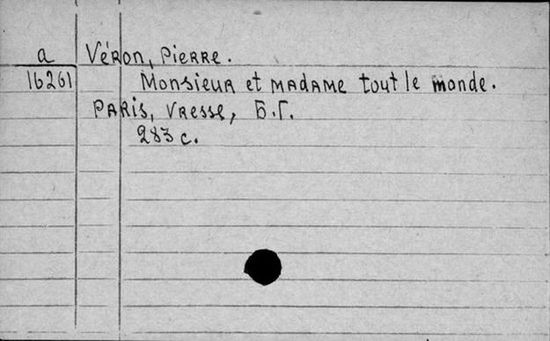 a
16261
Véron, Pierre.
Monsieur et madame tout le monde.
Paris, Vresse, Б.Г.
283 с.